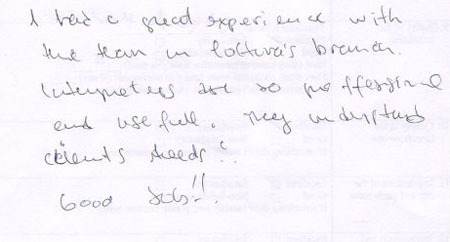 I had a great experience with
the team in branch.
Interpreters are so proffesional
and usefull. They understand
clients needs!
Good Job!!